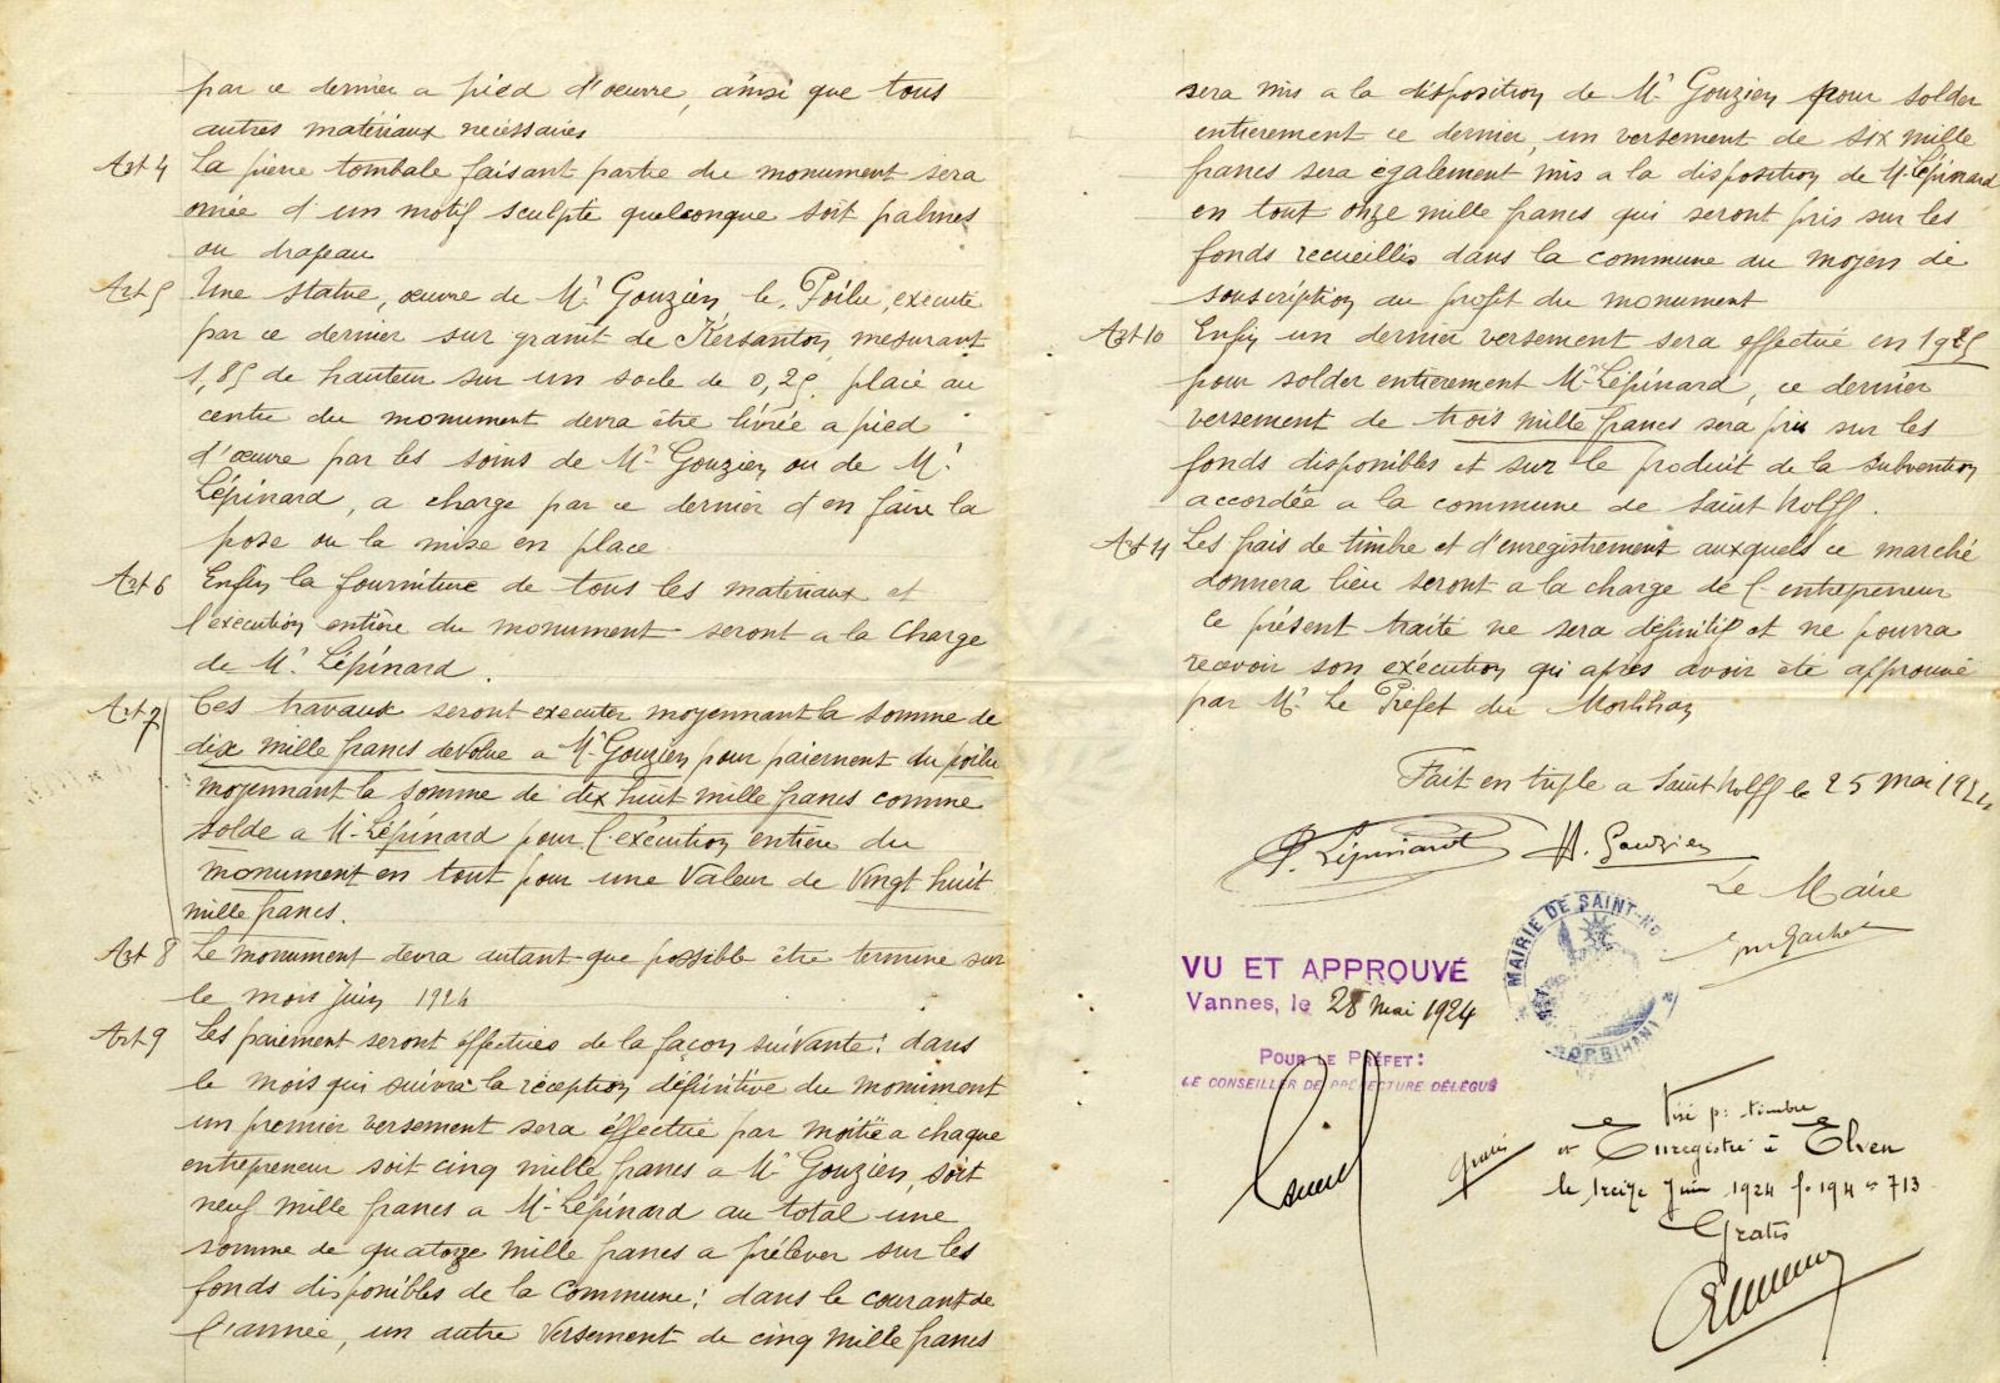 par ce dernier a pied d'œuvre, ainsi que tous
autres matériaux nécessaires
Art 4 La pierre tombale faisant partie du monument sera
ornée d'un motif sculpté quelconque soit palmes
ou drapeau
Art 5 Une statue, œuvre de Mr Gouzien, le Poilu, executé
par ce dernier sur granit de Kersanton, mesurant
1,85 de hauteur sur un socle de 0,25 placé au
centre du monument devra être livrée a pied
d'œuvre par les soins de Mr Gouzien ou de Mr
Lépinard, a charge par ce dernier d'en faire la
pose ou la mise en place
Art 6 Enfin la fourniture de tous les matériaux et
l'exécution entière du monument seront a la charge
de Mr Lépinard.
Art 7 Ces travaux seront executer moyennant la somme de
dix mille francs dévolue a Mr Gouzien pour paiement du poilu
moyennant la somme de dix huit mille francs comme
solde a Mr Lépinard pour l'exécution entière du
monument en tout pour une valeur de vingt huit
mille francs.
Art 8 Le monument devra autant que possible être terminé sur
le mois Juin 1924
Art 9 Les paiement seront éffectués de la façon suivante: dans
le mois qui suivra la réception définitive du monument
un premier versement sera éffectué par moitié a chaque
entrepreneur soit cinq mille francs a Mr Gouzien, soit
neuf mille francs a Mr Lépinard au total une
somme de quatorze mille francs a prélever sur les
fonds disponibles de la commune; dans le courant de
l'année, un autre versement de cinq mille francs
sera mis a la disposition de Mr Gouzien pour solder
entierement ce dernier, un versement de six mille
francs sera également mis a la disposition de Mr Lépinard
en tout onze mille francs qui seront pris sur les
fonds recueillis dans la commune au moyen de
souscription au profit du monument
Art 10 Enfin un dernier versement sera effectué en 1925
pour solder entierement Mr Lépinard, ce dernier
versement de trois mille francs sera pris sur les
fonds disponibles et sur le produit de la subvention
accordée a la commune de Saint Nolff.
Art 11 Les frais de timbre et d'enregistrement auxquels ce marché
donnera lieu seront a la charge de l'entrepreneur
Ce présent traité ne sera définitif et ne pourra
recevoir son exécution qu'après avoir été approuvé
par Mr Le Préfet du Morbihan
Fait en triple a Saint Nolff le 25 Mai 1924
P. Lépinard H. Gouzien
Le Maire
VU ET APPROUVÉ
Vannes, le 28 mai 1924
MAIRIE DE SAINT-NO
MORBIHAN
POUR LE PRÉFET:
LE CONSEILLER DE PRÉFECTURE DÉLÉGUÉ
Visé p: timbre
gratis et Enregistré à Elven
le treize Juin 1924 fo 194 no 713
Gratis